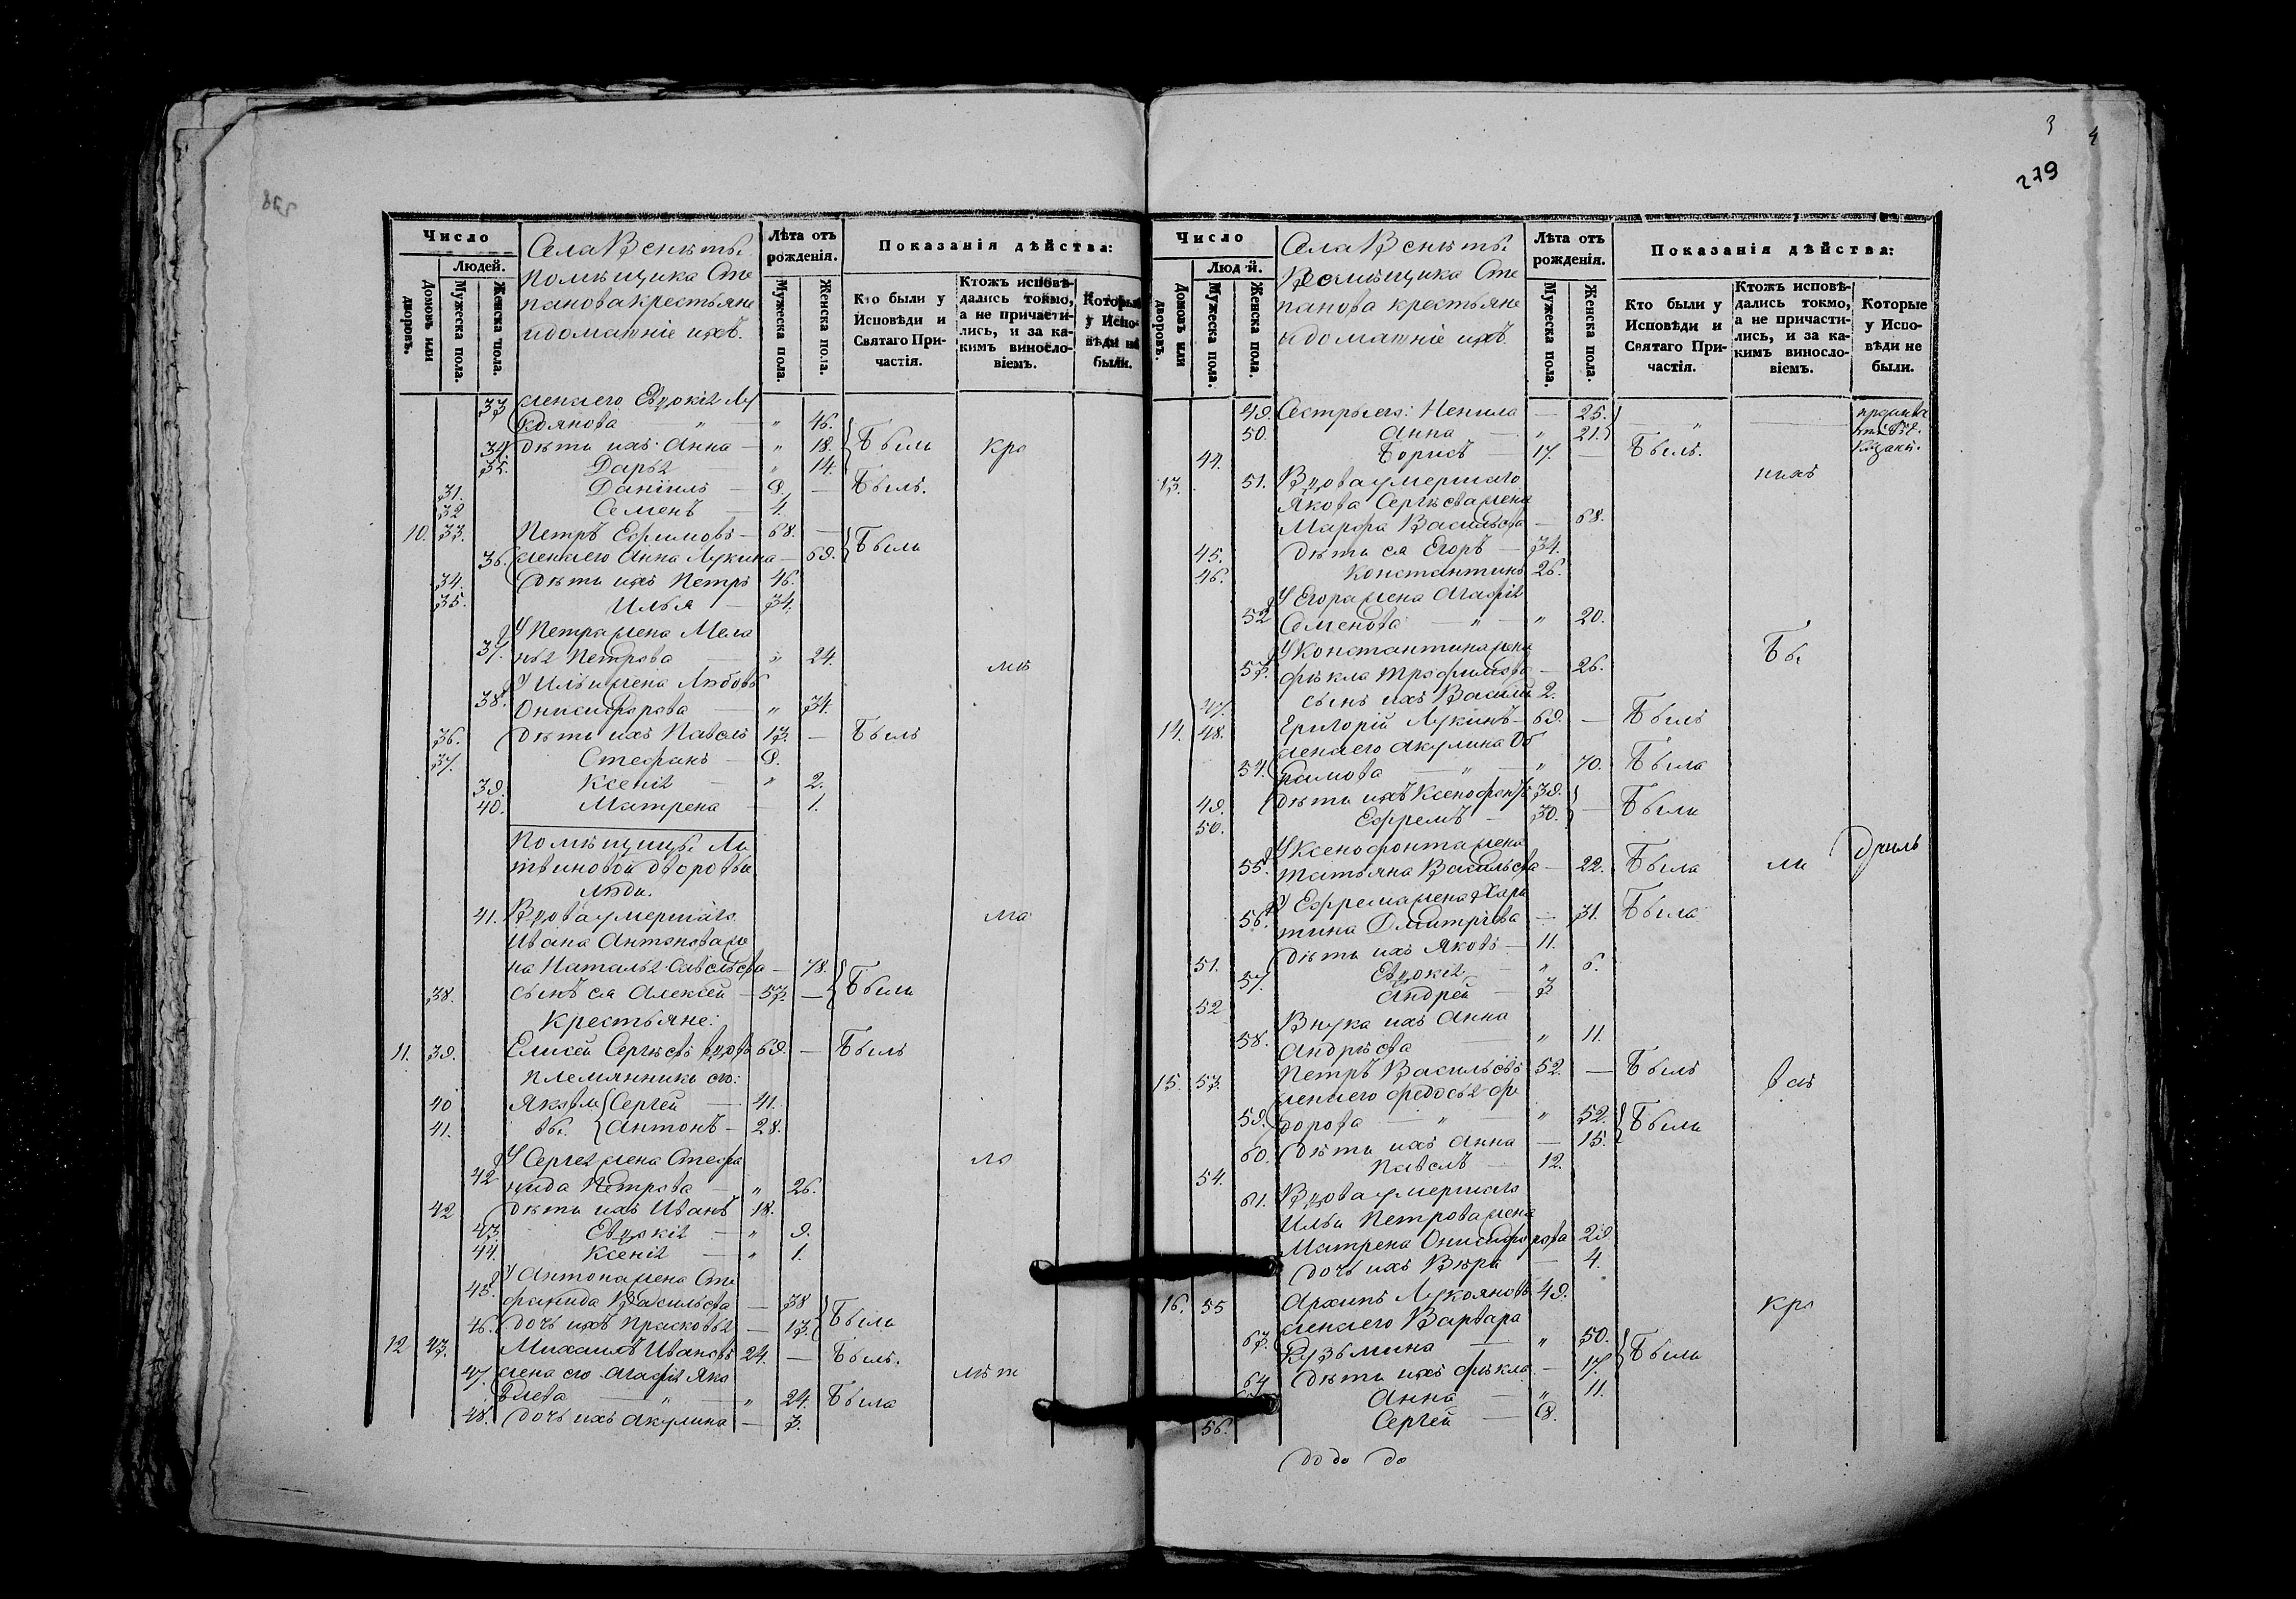 Число
Людей.
Домовъ или дворовъ.
Мужеска пола.
Женска пола.
Села Вснѣты
помѣщика Сте
панова крестьяне
и домашніе ихъ.
Лѣта отъ рожденія.
Мужеска пола.
Женска пола.
Показанія дѣйства:
Кто были у Исповѣди и Святаго Причастія.
Ктожъ исповѣдались токмо, а не причастились, и за какимъ винословіемъ.
Которые у Исповѣди не были.
33 жена его Евдокія Лу
кьянова " " 46.
34. дѣти ихъ Анна — " 18. Были кро
35. Дарья " 14.
31. Даніилъ — 8. — Былъ.
32 Семенъ — 4.
10. 33. Петръ Ефимовъ — 68. —
36. жена его Анна Лукина — 69. Были
34. Дѣти ихъ Петръ 46.
35. Илья — 34.
У Петра жена Мела
37. нья Петрова — " 24. мѣ
У Ильи жена Любовь
38. Онисифорова — " 34.
36. Дѣти ихъ Павелъ 13. — Былъ
37. Стефанъ — 8.
39. Ксенія — " 2.
40. Матрена — 1.
Помѣщицы Ли
твиновой дворовыи
люди.
41. Вдова умершаго ма
Ивана Антонова же
на Наталья Савельева — 78.
38. сынъ ея Алексей — 53. — Были
Крестьяне:
11. 39. Елисей Сергѣевъ вдовъ 69. — Былъ
племянники его:
40 Яковле Сергей — 41.
41. вы. Антонъ — 28.
У Сергея жена Стефа ло
42 нида Петрова — " 26.
42 Дѣти ихъ Иванъ 18.
43 Евдокія — " 9.
44. Ксенія — " 1.
У Антона жена Сте
45. фанида Васильева — 38
46. дочь ихъ Прасковья — 13. Были
12 43. Михаилъ Ивановъ 24. — Былъ.
47. жена его Агафія Яко лѣт
влева " " 24. Была
48. Дочь ихъ Акулина — 3.
3
4
279
Число
Людей.
Домовъ или дворовъ.
Мужеска пола.
Женска пола.
Села Вснѣты
Помѣщика Сте
панова крестьяне
и домашніе ихъ
Лѣта отъ рожденія.
Мужеска пола.
Женска пола.
Показанія дѣйства:
Кто были у Исповѣди и Святаго Причастія.
Ктожъ исповѣдались токмо, а не причастились, и за какимъ винословіемъ.
Которые у Исповѣди не были.
49. Сестры его: Ненила — 25. — "
50. Анна — " 21.
44. Борисъ — 17. — Былъ.
13. 51. Вдова умершаго нихъ
Якова Сергѣева жена
Марфа Васильева — 68.
45. Дѣти ея Егоръ — 34.
46. Константинъ 26.
У Егора жена Агафія
52 Семенова — " — " 20.
У Константина жена Бы
53. Ѳекла Трофимова — 26.
47. сынъ ихъ Василій 2.
14. 48. Григорій Лукинъ — 69. — Былъ
жена его Акулина Об
54. рамова — " — " 70. Была
49. Дѣти ихъ Ксенофонтъ 39.
50. Ефремъ — 30. — Были
У Ксенофонта жена
55. Татьяна Васильева — 22. Была ли
У Ефрема жена Хари
56. тина Дмитріева — 31. Была
51. Дѣти ихъ Яковъ — 11.
57. Евдокія — " 6.
52 Андрей — 3
Внука ихъ Анна
58. Андрѣева — " 11.
15. 53. Петръ Васильевъ 52. — Былъ
жена его Федосья Фе
59. дорова — " — " 52.
60. Дѣти ихъ Анна — 15. Были
54. Павелъ — 12.
61. Вдова умершаго
Ильи Петрова жена
Матрена Онисифорова 29
дочь ихъ Вѣра — 4.
16. 55 Архипъ Лукояновъ 49. кро
жена его Варвара
63. Кузьмина — " 50.
64 Дѣти ихъ Ѳекла — 17. Были
Анна — " 11.
56. Сергей — 8.